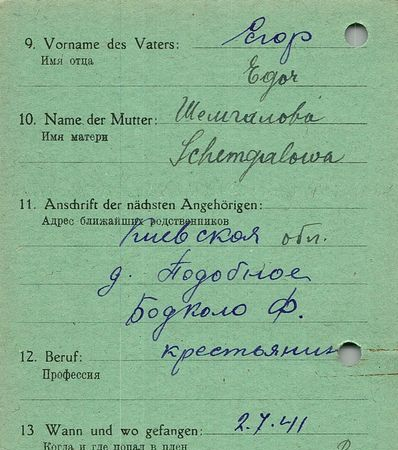 9. Vorname des Vaters: Егор
Имя отца
Egor
10. Name der Mutter: Шемгалова
Имя матери
Schemgalowa
11. Anschrift der nächsten Angehörigen:
Адрес ближайших родственников
Киевская обл.
д. Подобное
Бодколо Ф.
12. Beruf: крестьянин
Профессия
13 Wann und wo gefangen: 2.7.41
Когда и где попал в плен